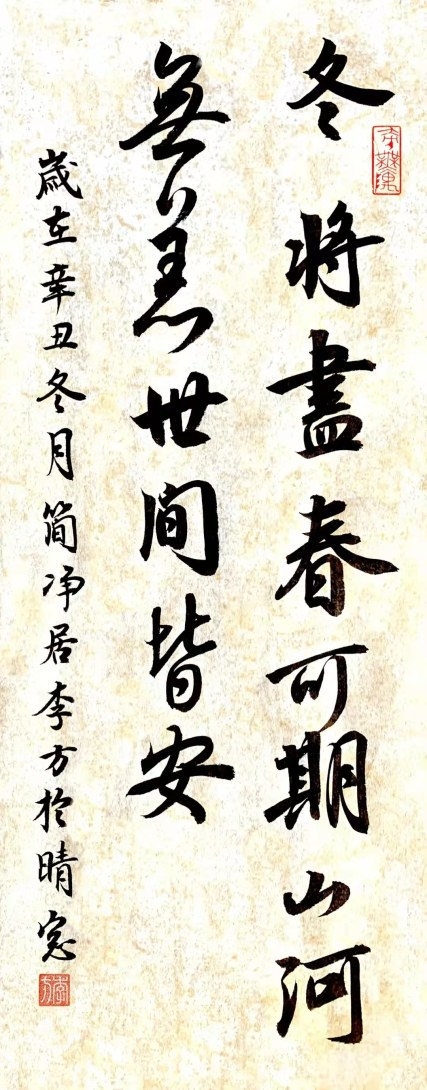 冬將盡春可期山河
無恙世間皆安
歲在辛丑冬月簡净居李方於晴窓